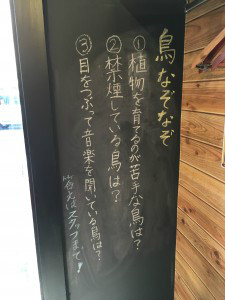 鳥なぞなぞ
①植物を育てるのが苦手な鳥は?
②禁煙している鳥は?
③目をつぶって音楽を聞いている鳥は?
答えはスタッフまで!